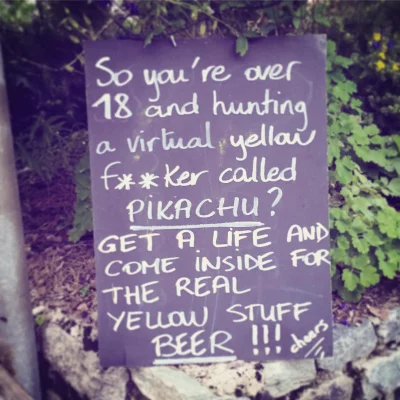 So you're over
18 and hunting
a virtual yellow
f**ker called
PIKACHU?
GET A LIFE AND
COME INSIDE FOR
THE REAL
YELLOW STUFF
BEER !!! cheers